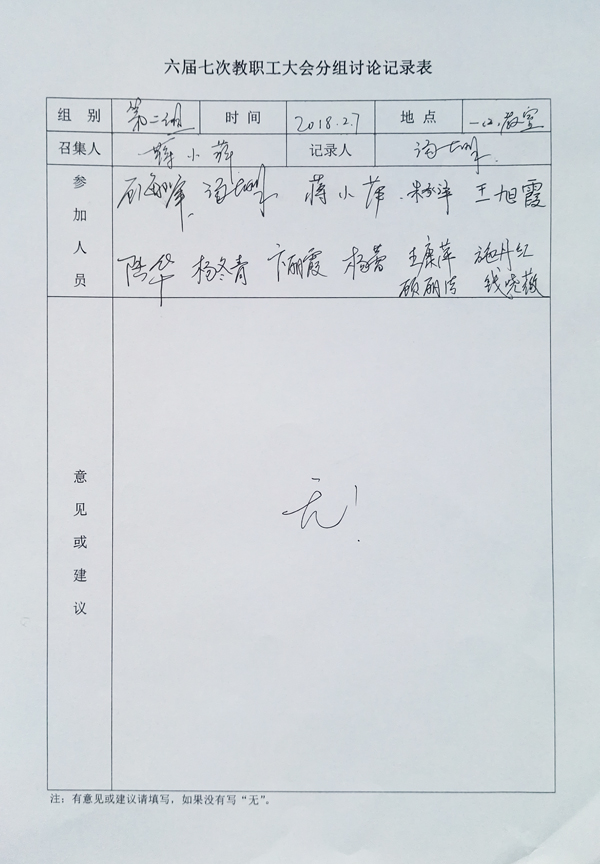 六届七次教职工大会分组讨论记录表
组 别 第二组 时 间 2018.2.7 地 点 一(2)教室
召集人 蒋小萍 记录人
参加人员 蒋小萍 王旭霞
陈华 杨冬青 卞丽霞 杨蕾 王康萍 施丹红
顾丽洁 钱晓薇
意见或建议 无!
注：有意见或建议请填写，如果没有写“无”。